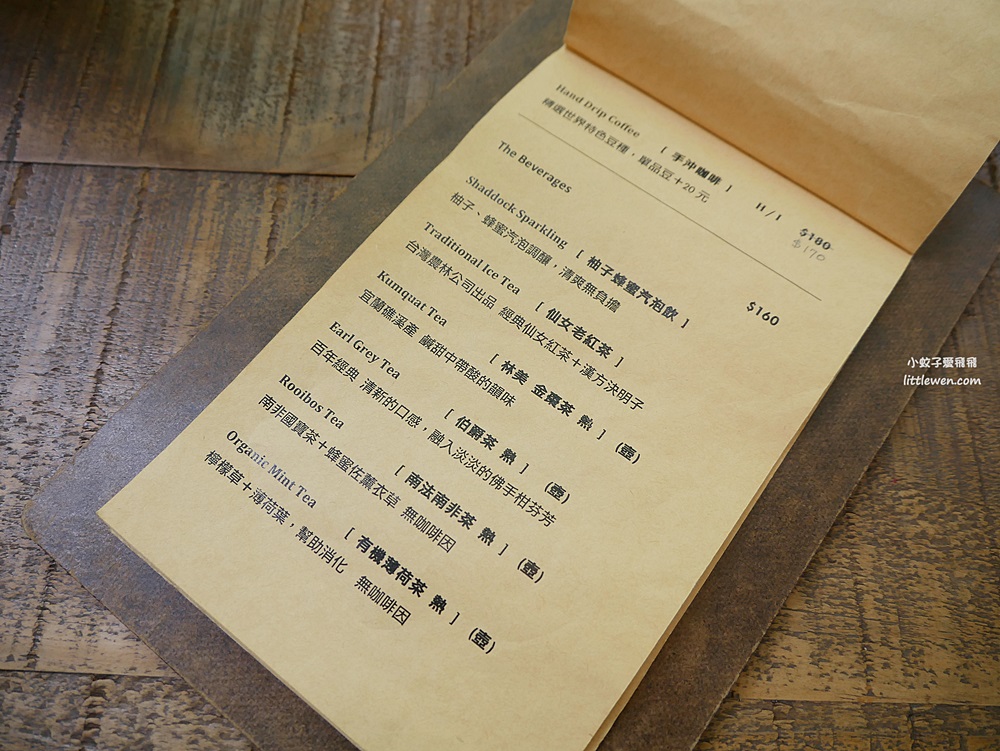 Hand Drip Coffee [ 手沖咖啡 ] H / I $180
精選世界特色豆種，單品豆＋20 元 $170
The Beverages $160
Shaddock Sparkling [ 柚子蜂蜜汽泡飲 ]
柚子、蜂蜜汽泡調釀，清爽無負擔
Traditional Ice Tea [ 仙女老紅茶 ]
台灣農林公司出品 經典仙女紅茶＋漢方決明子
Kumquat Tea [ 林美 金棗茶 熱 ] (壺)
宜蘭礁溪產 鹹甜中帶酸的韻味
Earl Grey Tea [ 伯爵茶 熱 ] (壺)
百年經典 清新的口感，融入淡淡的佛手柑芬芳
Rooibos Tea [ 南法南非茶 熱 ] (壺)
南非國寶茶＋蜂蜜佐薰衣草 無咖啡因
Organic Mint Tea [ 有機薄荷茶 熱 ] (壺)
檸檬草＋薄荷葉，幫助消化 無咖啡因
小蚊子愛飛飛
littlewen.com